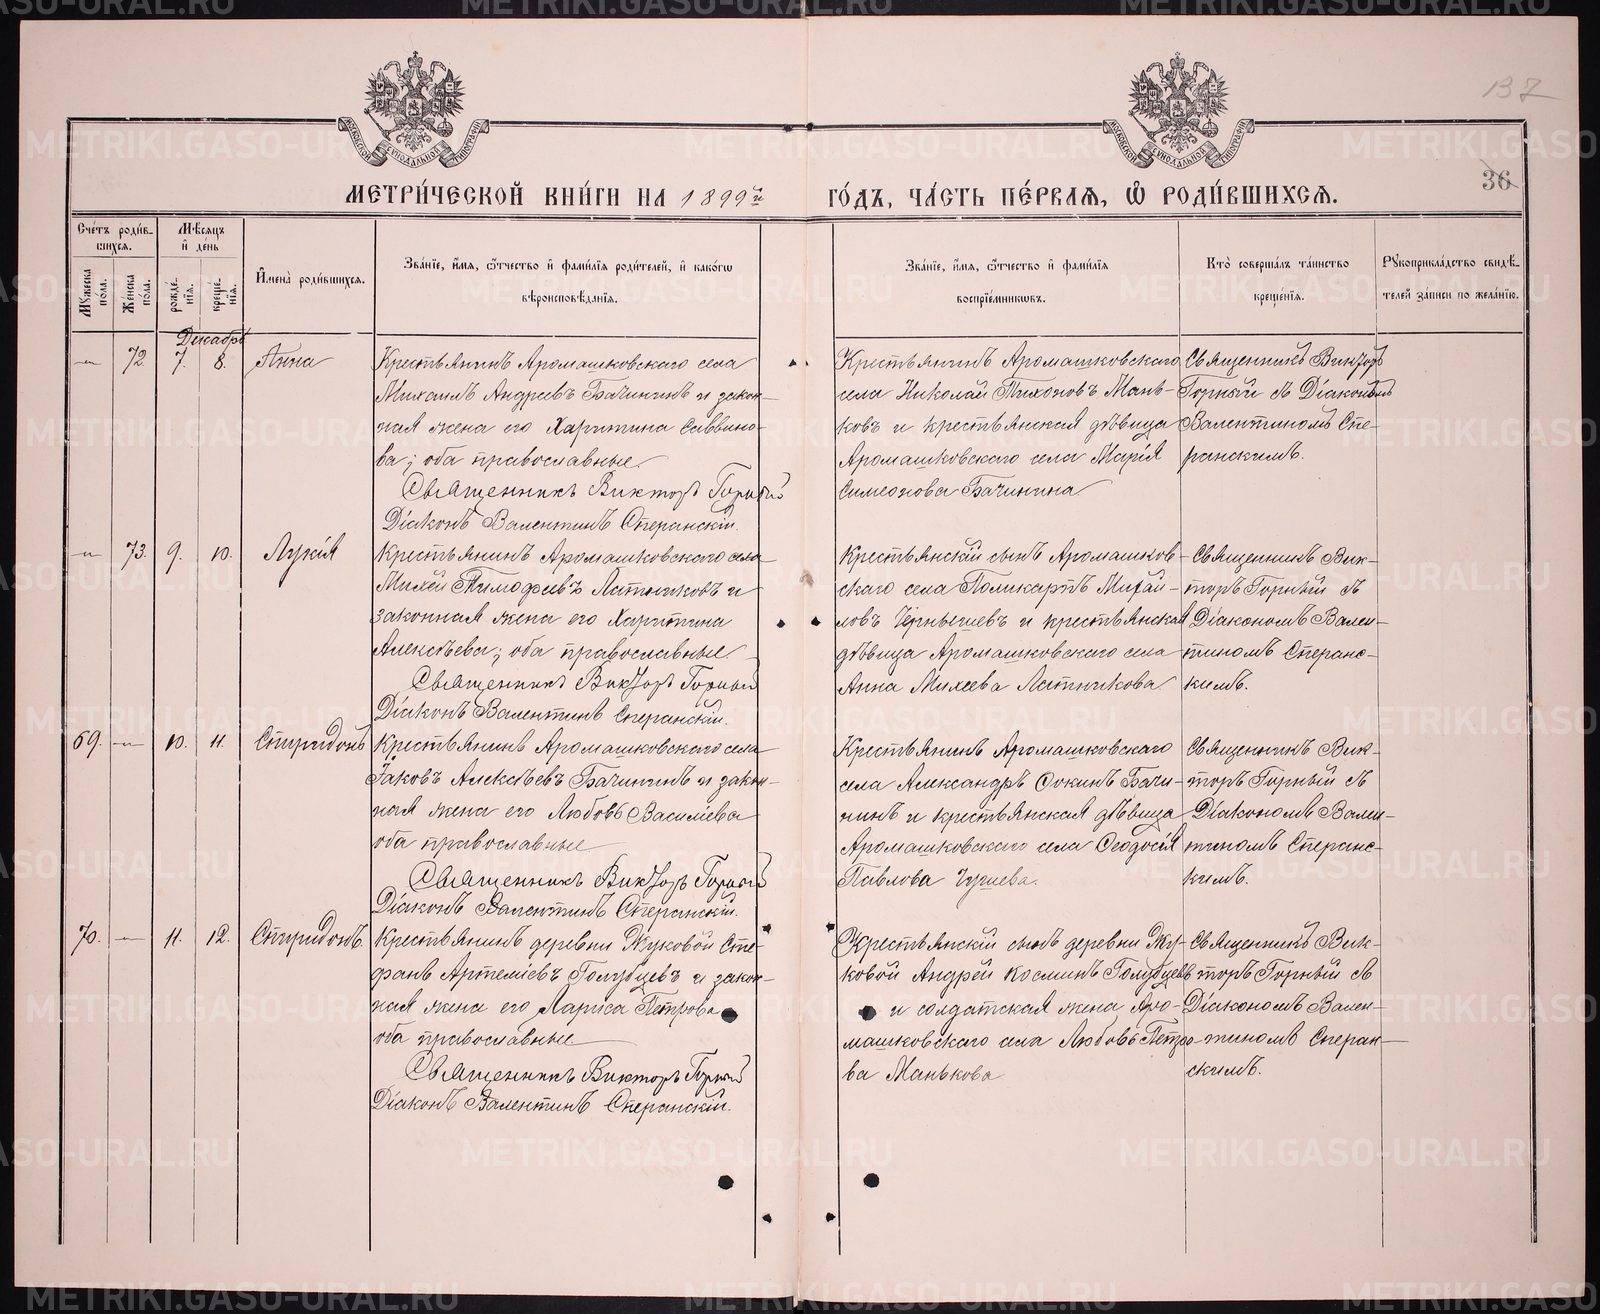 137
36
МЕТРИ́ЧЕСКОЙ КНИ́ГИ НА 1899й
ГО́ДЪ, ЧА́СТЬ ПЕ́РВАѦ, Ѽ РОДИ́ВШИХСѦ.
Сче́тъ роди́в-
шихсѧ.
Мꙋжеска по́ла.
Же́нска по́ла.
Мѣ́сѧцъ
и҆ де́нь
рожде́-
нїѧ.
креще́-
нїѧ.
И҆мена̀ роди́вшихсѧ.
Зва́нїе, и҆́мѧ, ѻ҆́тчество и҆ фами́лїѧ роди́телей, и҆ како́гѡ
вѣроисповѣ́данїѧ.
Зва́нїе, и҆́мѧ, ѻ҆́тчество и҆ фами́лїѧ
воспрїе́мниковъ.
Кто̀ соверша́лъ та́инство
креще́нїѧ.
Рꙋкоприкла́дство свидѣ́-
телей за́писи по жела́нїю.
Декабрь
—„— 72 7. 8. Анна
Крестьянинъ Аромашковскаго села
Михаилъ Андреевъ Бачининъ и закон-
ная жена его Харитина Саввино-
ва; оба православные
Священникъ Викторъ Горный
Діаконъ Валентинъ Сперанскій.
Крестьянинъ Аромашковскаго
села Николай Тихоновъ Мань-
ковъ и крестьянская дѣвица
Аромашковскаго села Марія
Симеонова Бачинина
Священникъ Викторъ
Горный съ Діакономъ
Валентиномъ Спе-
ранскимъ.
—„— 73. 9. 10. Лукія
Крестьянинъ Аромашковскаго села
Михей Тимофеевъ Латниковъ и
законная жена его Харитина
Алексѣева; оба православные
Священникъ Викторъ Горный
Діаконъ Валентинъ Сперанскій.
Крестьянскій сынъ Аромашков-
скаго села Поликарпъ Михаи-
ловъ Чернышевъ и крестьянская
дѣвица Аромашковскаго села
Анна Михеева Латникова
Священникъ Вик-
торъ Горный съ
Діакономъ Вален-
тиномъ Сперанс-
кимъ.
69. —„— 10. 11. Спиридонъ
Крестьянинъ Аромашковскаго села
Іаковъ Алексѣевъ Бачининъ и закон-
ная жена его Любовь Василіева
оба православные
Священникъ Викторъ Горный
Діаконъ Валентинъ Сперанскій.
Крестьянинъ Аромашковскаго
села Александръ Бачи-
нинъ и крестьянская дѣвица
Аромашковскаго села Ѳеодосія
Павлова
Священникъ Вик-
торъ Горный съ
Діакономъ Вален-
тиномъ Сперанс-
кимъ.
70. — 11. 12. Спиридонъ
Крестьянинъ деревни Жуковой Сте-
фанъ Артеміевъ Голубцевъ и закон-
ная жена его Лариса Петрова
оба православные
Священникъ Викторъ Горный
Діаконъ Валентинъ Сперанскій.
Крестьянскій сынъ деревни Жу-
ковой Андрей Косминъ Голубцевъ
и солдатская жена Аро-
машковскаго села Любовь Петро-
ва Манькова
Священникъ Вик-
торъ Горный съ
Діакономъ Вален-
тиномъ Сперан-
скимъ.
METRIKI.GASO-URAL.RU